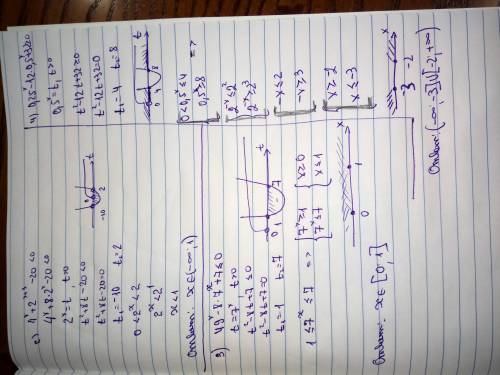 2) 4ˣ+2ˣ⁺³-20<0
4ˣ+8·2ˣ-20<0
2ˣ=t t>0
t²+8t-20<0
t²+8t-20=0
t₁=-10 t₂=2
-10 2
0<2ˣ<2
2ˣ<2¹
x<1
Ответ: x∈(-∞;1)
3) 49ˣ-8·7ˣ+7≤0
t=7ˣ, t>0
t²-8t+7≤0
t²-8t+7=0
t₁=1 t₂=7
0 1 7 t
1≤7ˣ≤7 => {7ˣ≥1 {x≥0
{7ˣ≤7 {x≤1
0 1 x
Ответ: x∈[0;1]
4) 0,25ˣ-12·0,5ˣ+32≥0
0,5ˣ=t, t>0
t²-12t+32≥0
t²-12t+32=0
t₁=4 t₂=8
0 4 8 t
0<0,5ˣ≤4
0,5ˣ≥8 =>
2⁻ˣ≤2²
2⁻ˣ≥2³
-x≤2
-x≥3
x≥-2
x≤-3
-3 -2 x
Ответ: (-∞;-3]U[-2;+∞)